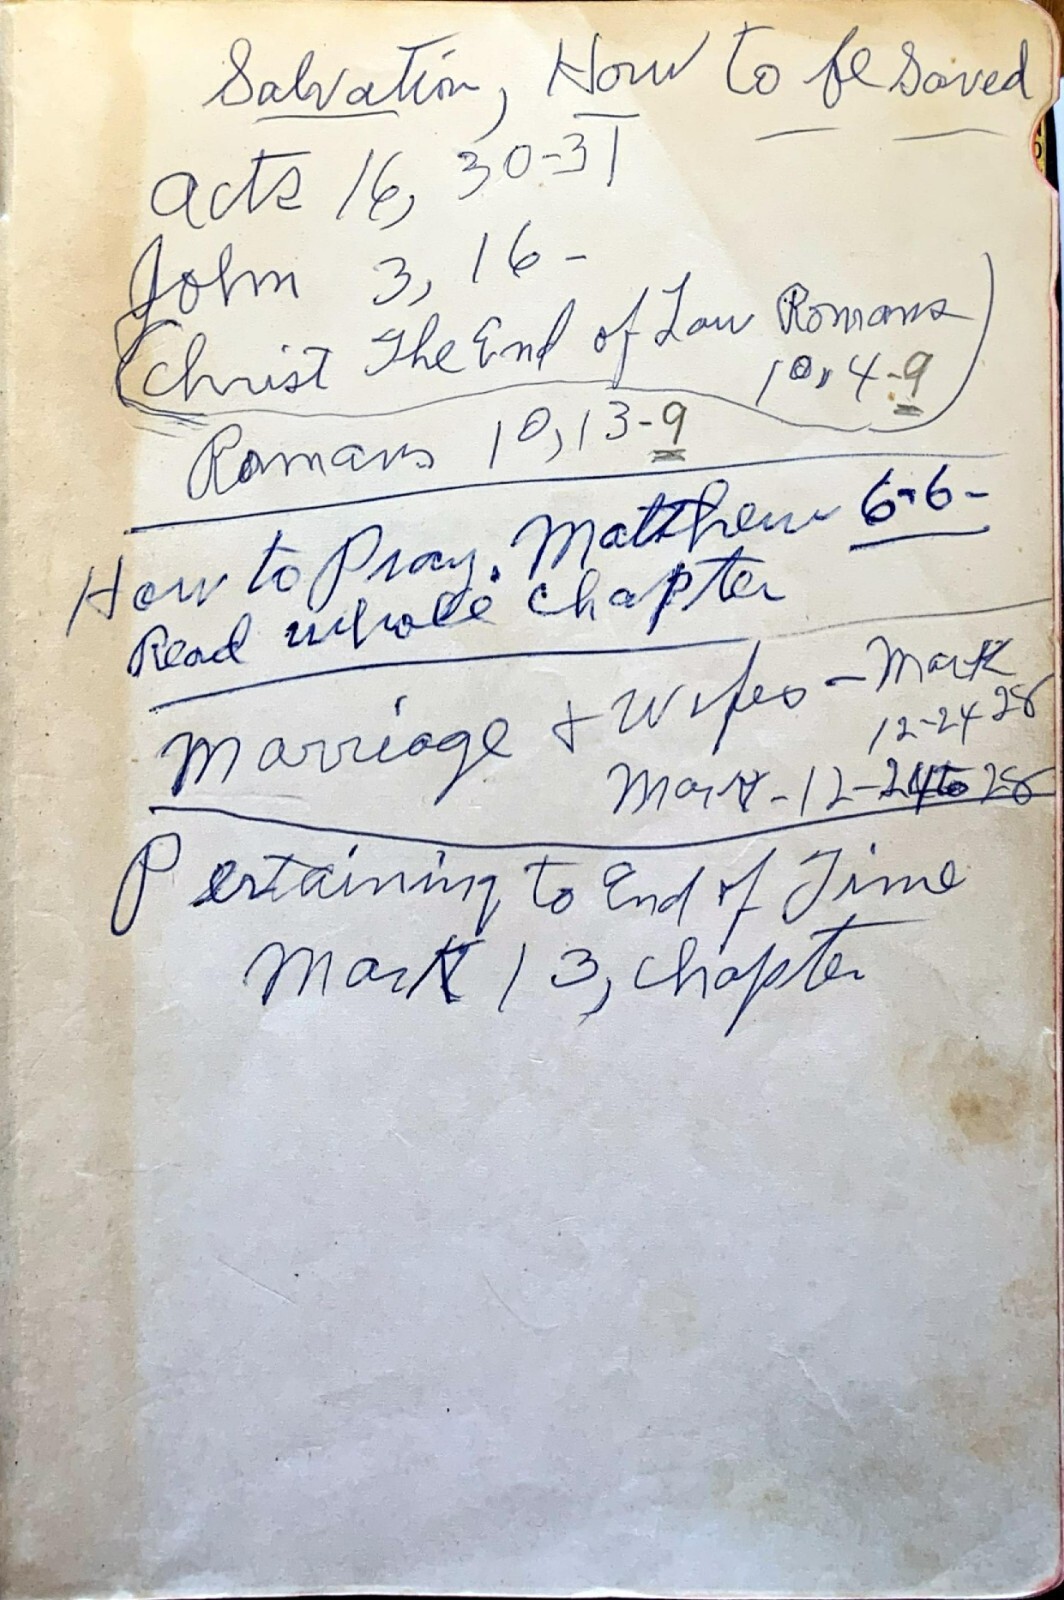 Salvation, How to be Saved
Acts 16, 30-31
John 3, 16-
(Christ The End of Law Romans
10, 4-9)
Romans 10, 13-9
How to Pray. Matthew 6-6-
Read whole chapter
Marriage & Wifes - Mark
12-24 28
Mark - 12-24 to 28
Pertaining to End of Time
Mark 13, chapter